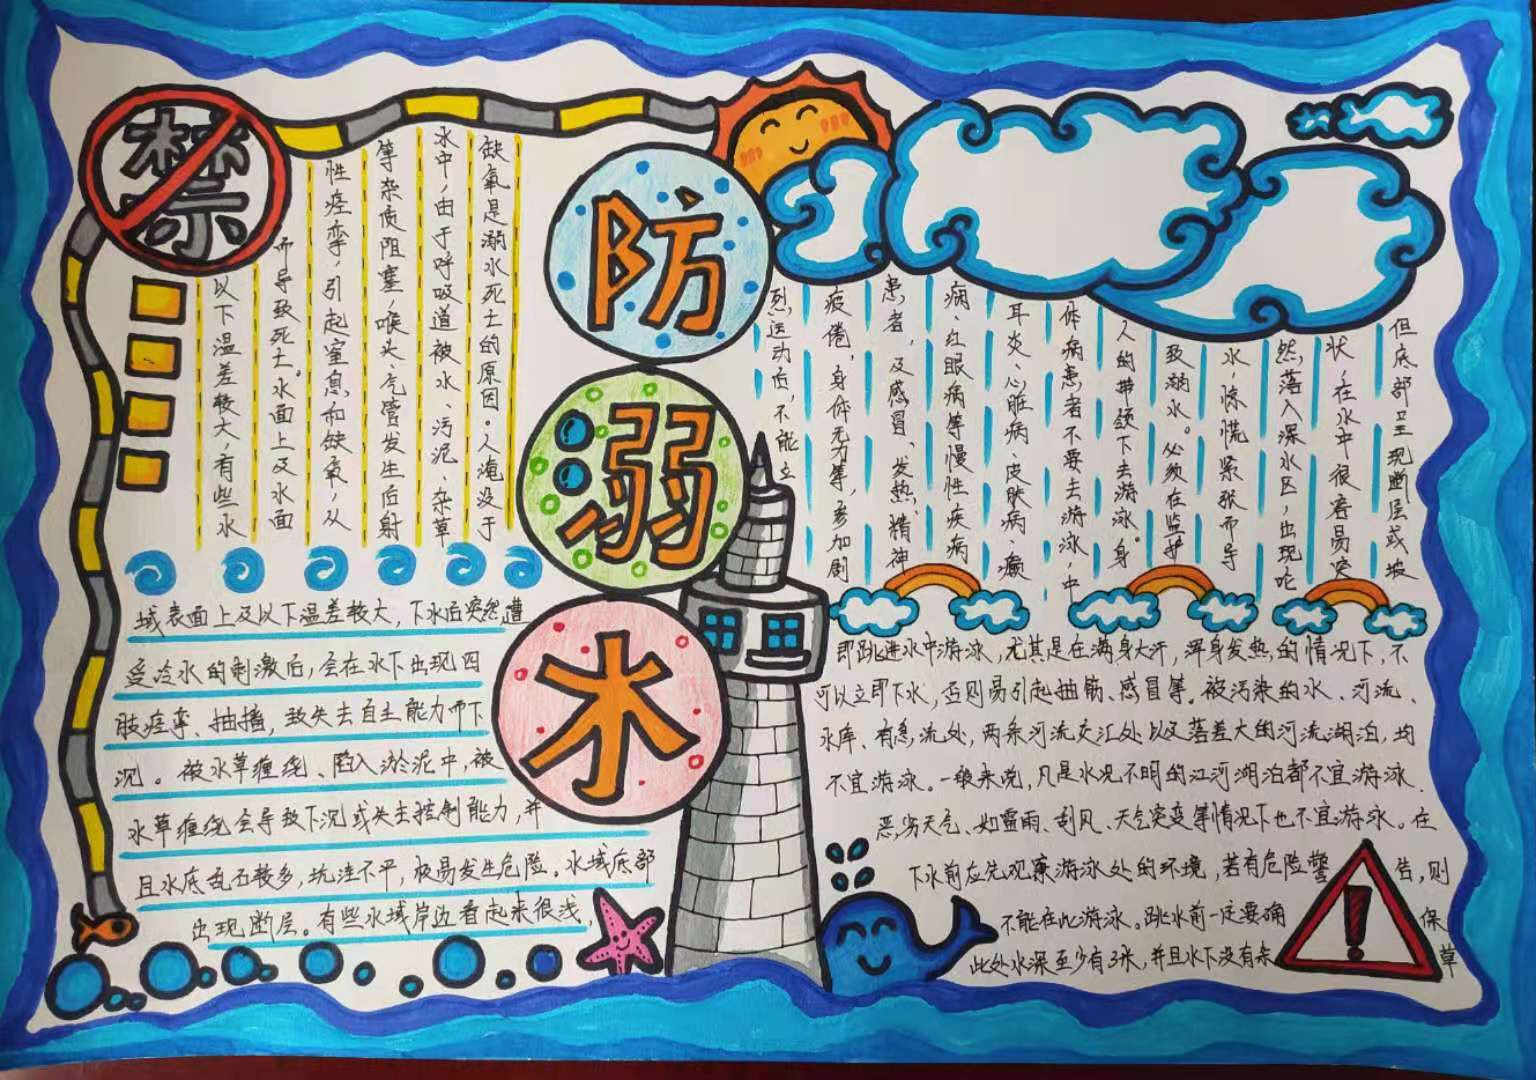 禁
防
溺
水
缺氧是溺水死亡的原因。人淹没于
水中，由于呼吸道被水、污泥、杂草
等杂质阻塞，喉头、气管发生后射
性痉挛，引起窒息和缺氧，从
而导致死亡。水面上及水面
以下温差较大，有些水
域表面上及以下温差较大，下水后突然遭
受冷水的刺激后，会在水下出现四
肢痉挛、抽搐，致失去自主能力而下
沉。被水草缠绕、陷入淤泥中，被
水草缠绕会导致下沉或失去控制能力，并
且水底乱石较多，坑洼不平，极易发生危险。水域底部
出现断层。有些水域岸边看起来很浅，
但底部呈现断层或坡
状，在水中很容易突
然落入深水区，出现呛
水，惊慌紧张而导
致溺水。必须在监护
人的带领下去游泳。身
体病患者不要去游泳，中
耳炎、心脏病、皮肤病、癫
痫、红眼病等慢性疾病
患者，及感冒、发热、精神
疲倦、身体无力等，参加剧
烈运动后，不能立
即跳进水中游泳，尤其是在满身大汗，浑身发热的情况下，不
可以立即下水，否则易引起抽筋、感冒等。被污染的水、河流、
水库、有急流处，两条河流交汇处以及落差大的河流湖泊，均
不宜游泳。一般来说，凡是水况不明的江河湖泊都不宜游泳.
恶劣天气、如雷雨、刮风、天气突变等情况下也不宜游泳。在
下水前应先观察游泳处的环境，若有危险警告，则
不能在此游泳。跳水前一定要确保
此处水深至少有3米，并且水下没有杂草